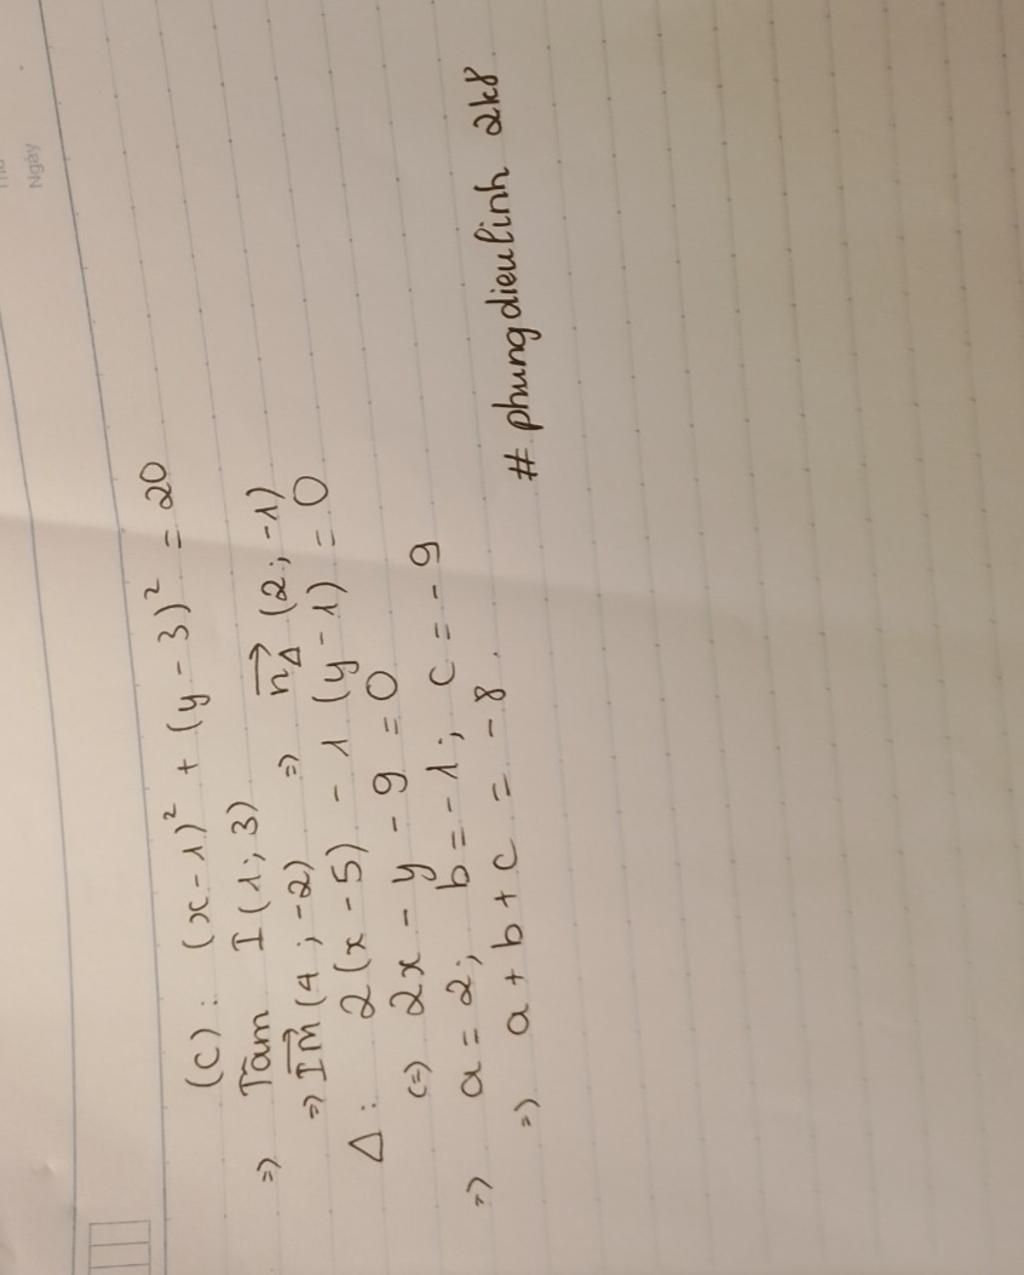 Ngày
(C): (x-1)² + (y-3)² = 20
=) Tâm I(1;3)
=) \overrightarrow{IM} (4;-2) =) \overrightarrow{n_Δ} (2;-1)
Δ: 2(x-5) - 1(y-1) = 0
(=) 2x - y - 9 = 0
=) a = 2; b = -1; c = -9
=) a + b + c = -8.
# phungdieulinh 2k8